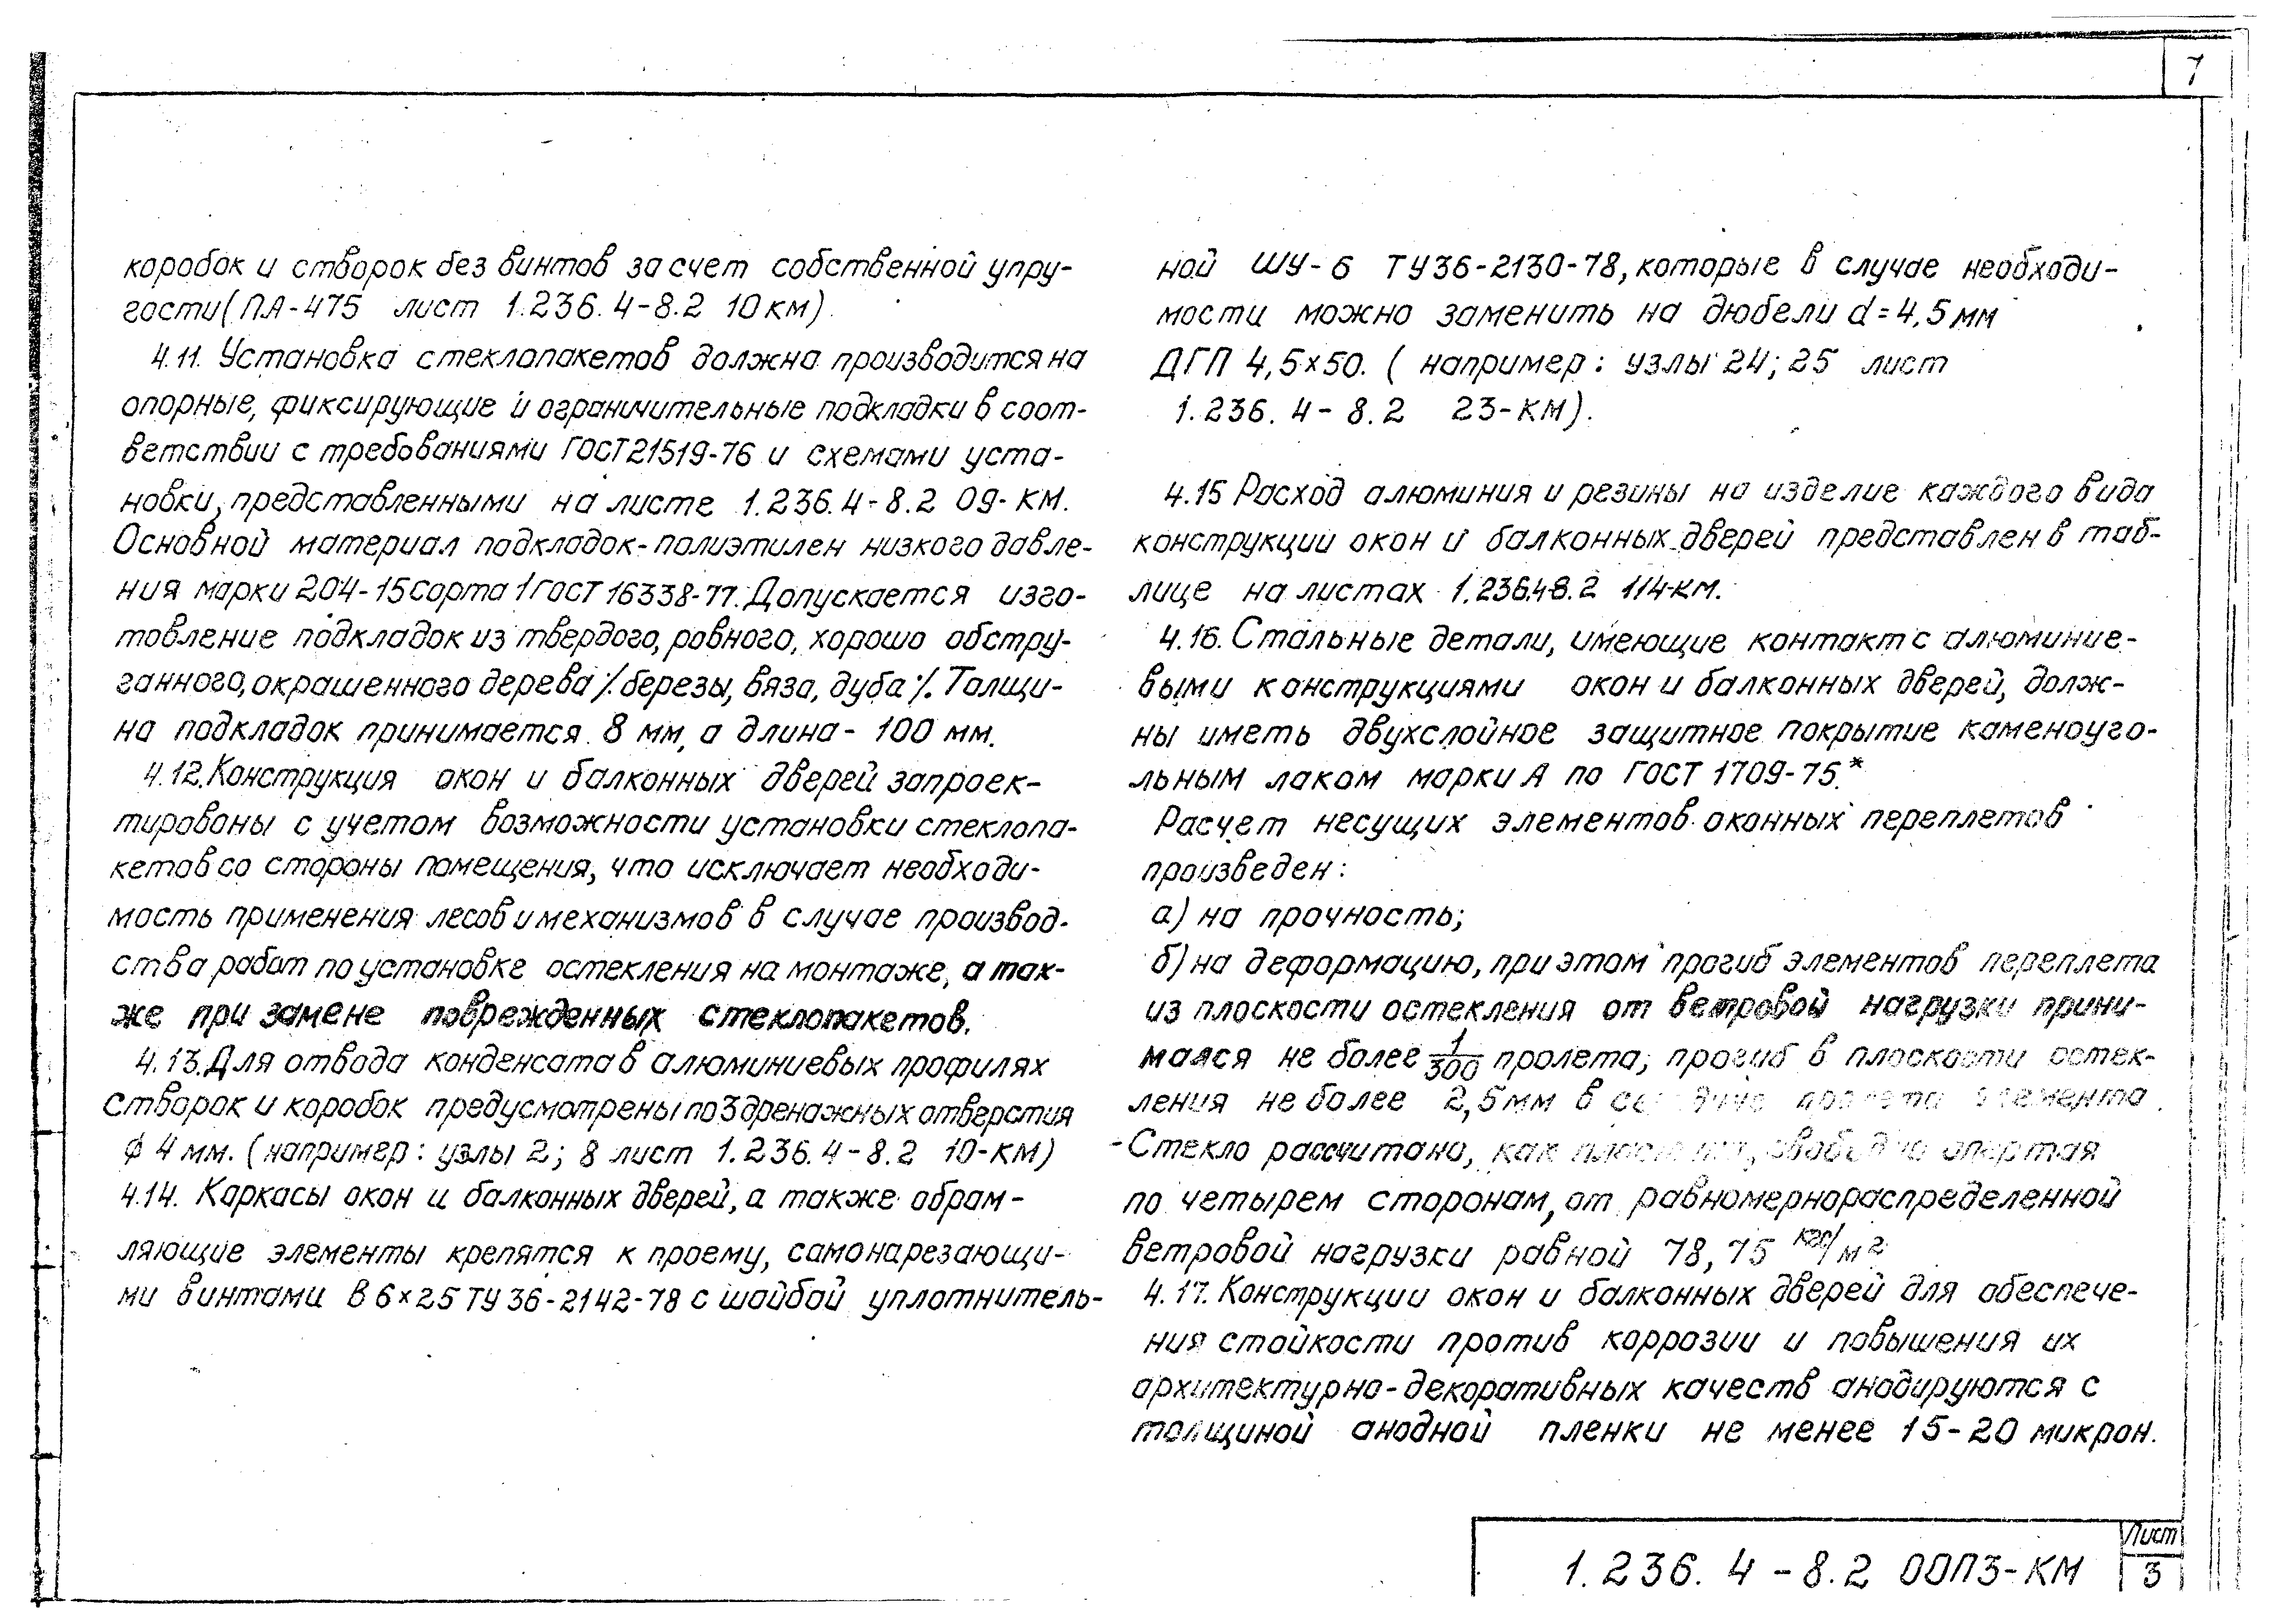 7
коробок и створок без винтов за счет собственной упру-
гости (ПА-475 лист 1.236.4-8.2 10км).
4.11. Установка стеклопакетов должна производится на
опорные, фиксирующие и ограничительные подкладки в соот-
ветствии с требованиями ГОСТ 21519-76 и схемами уста-
новки, представленными на листе 1.236.4-8.2 09-КМ.
Основной материал подкладок-полиэтилен низкого давле-
ния марки 204-15 сорта 1 ГОСТ 16338-77. Допускается изго-
товление подкладок из твердого, ровного, хорошо обстру-
ганного, окрашенного дерева /.березы, вяза, дуба /. Толщи-
на подкладок принимается 8 мм, а длина - 100 мм.
4.12. Конструкция окон и балконных дверей запроек-
тированы с учетом возможности установки стеклопа-
кетов со стороны помещения, что исключает необходи-
мость применения лесов и механизмов в случае производ-
ства работ по установке остекления на монтаже, а так-
же при замене поврежденных стеклопакетов.
4.13. Для отвода конденсата в алюминиевых профилях
створок и коробок предусмотрены по 3 дренажных отверстия
ф 4 мм. (например: узлы 2; 8 лист 1.236.4-8.2 10-КМ)
4.14. Каркасы окон и балконных дверей, а также обрам-
ляющие элементы крепятся к проему, самонарезающи-
ми винтами В 6×25 ТУ 36-2142-78 с шайбой уплотнитель-
ной ШУ-6 ТУ36-2130-78, которые в случае необходи-
мости можно заменить на дюбели d=4,5мм
ДГП 4,5×50. (например: узлы 24; 25 лист
1.236.4-8.2 23-КМ).
4.15 Расход алюминия и резины на изделие каждого вида
конструкции окон и балконных дверей представлен в таб-
лице на листах 1.236.4-8.2 114-КМ.
4.16. Стальные детали, имеющие контакт с алюминие-
выми конструкциями окон и балконных дверей, долж-
ны иметь двухслойное защитное покрытие каменоуго-
льным лаком марки А по ГОСТ 1709-75.*
Расчет несущих элементов оконных переплетов
произведен:
а) на прочность;
б) на деформацию, при этом прогиб элементов переплета
из плоскости остекления от ветровой нагрузки прини-
мался не более 1/300 пролета; прогиб в плоскости остек-
ления не более 2,5мм в середине пролета элемента.
Стекло рассчитано, как пластина, свободно опертая
по четырем сторонам, от равномернораспределенной
ветровой нагрузки равной 78,75 кгс/м²
4.17. Конструкции окон и балконных дверей для обеспече-
ния стойкости против коррозии и повышения их
архитектурно-декоративных качеств анодируются с
толщиной анодной пленки не менее 15-20 микрон.
1.236.4-8.2 00ПЗ-КМ
Лист
3